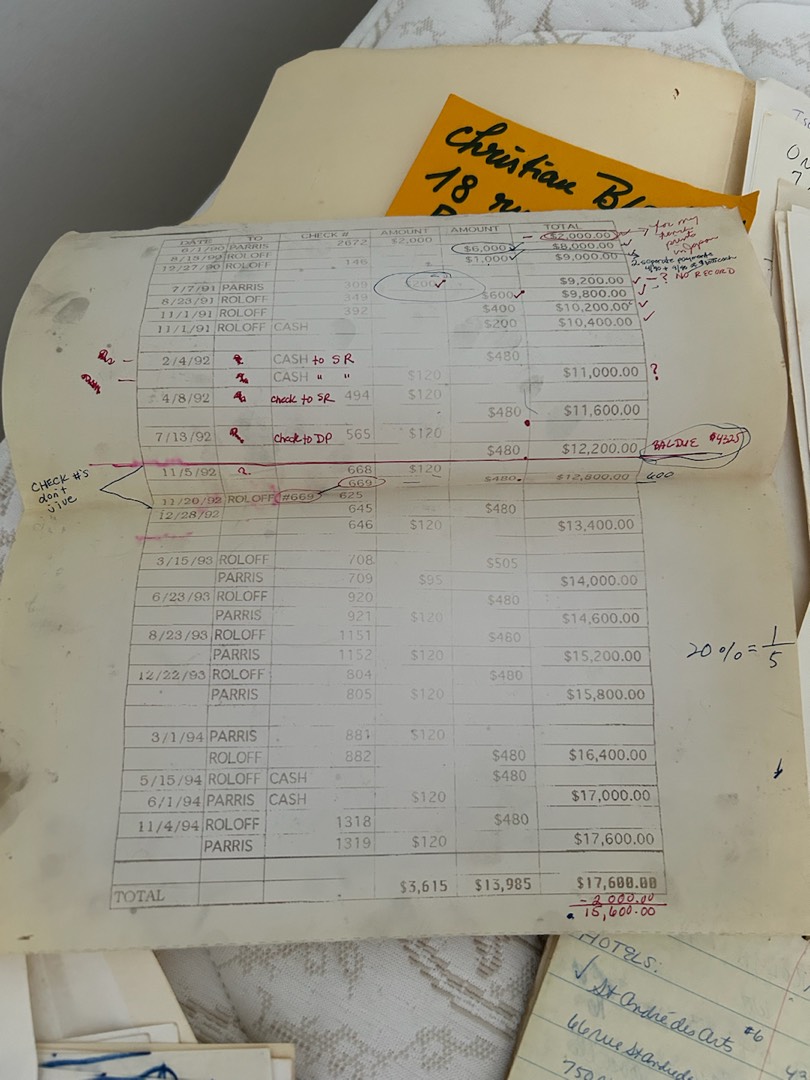 Christian
18
DATE TO CHECK # AMOUNT AMOUNT TOTAL
6/1/90 PARRIS 2672 $2,000 - $2,000.00
8/15/90 ROLOFF $6,000 $8,000.00
12/27/90 ROLOFF 146 $1,000 $9,000.00
7/7/91 PARRIS 309 200 $9,200.00 - ? NO RECORD
8/23/91 ROLOFF 349 $600 $9,800.00
11/1/91 ROLOFF 392 $400 $10,200.00
11/1/91 ROLOFF CASH $200 $10,400.00
2/4/92 CASH to SR $480
CASH " " $120 $11,000.00 ?
4/8/92 check to SR 494 $120
$480 $11,600.00
7/13/92 check to DP 565 $120
$480 $12,200.00 BAL DUE $4325
11/5/92 668 $120
669 — $480 $12,800.00 600
CHECK #'s
don't
jive
11/20/92 ROLOFF #669 625
12/28/92 645 $480
646 $120 $13,400.00
3/15/93 ROLOFF 708 $505
PARRIS 709 $95 $14,000.00
6/23/93 ROLOFF 920 $480
PARRIS 921 $120 $14,600.00
8/23/93 ROLOFF 1151 $480
PARRIS 1152 $120 $15,200.00
20% = 1/5
12/22/93 ROLOFF 804 $480
PARRIS 805 $120 $15,800.00
3/1/94 PARRIS 881 $120
ROLOFF 882 $480 $16,400.00
5/15/94 ROLOFF CASH $480
6/1/94 PARRIS CASH $120 $17,000.00
11/4/94 ROLOFF 1318 $480
PARRIS 1319 $120 $17,600.00
TOTAL $3,615 $13,985 $17,600.00
- 2000.00
15,600.00
HOTELS:
St André des Arts #6
66 rue St André
750